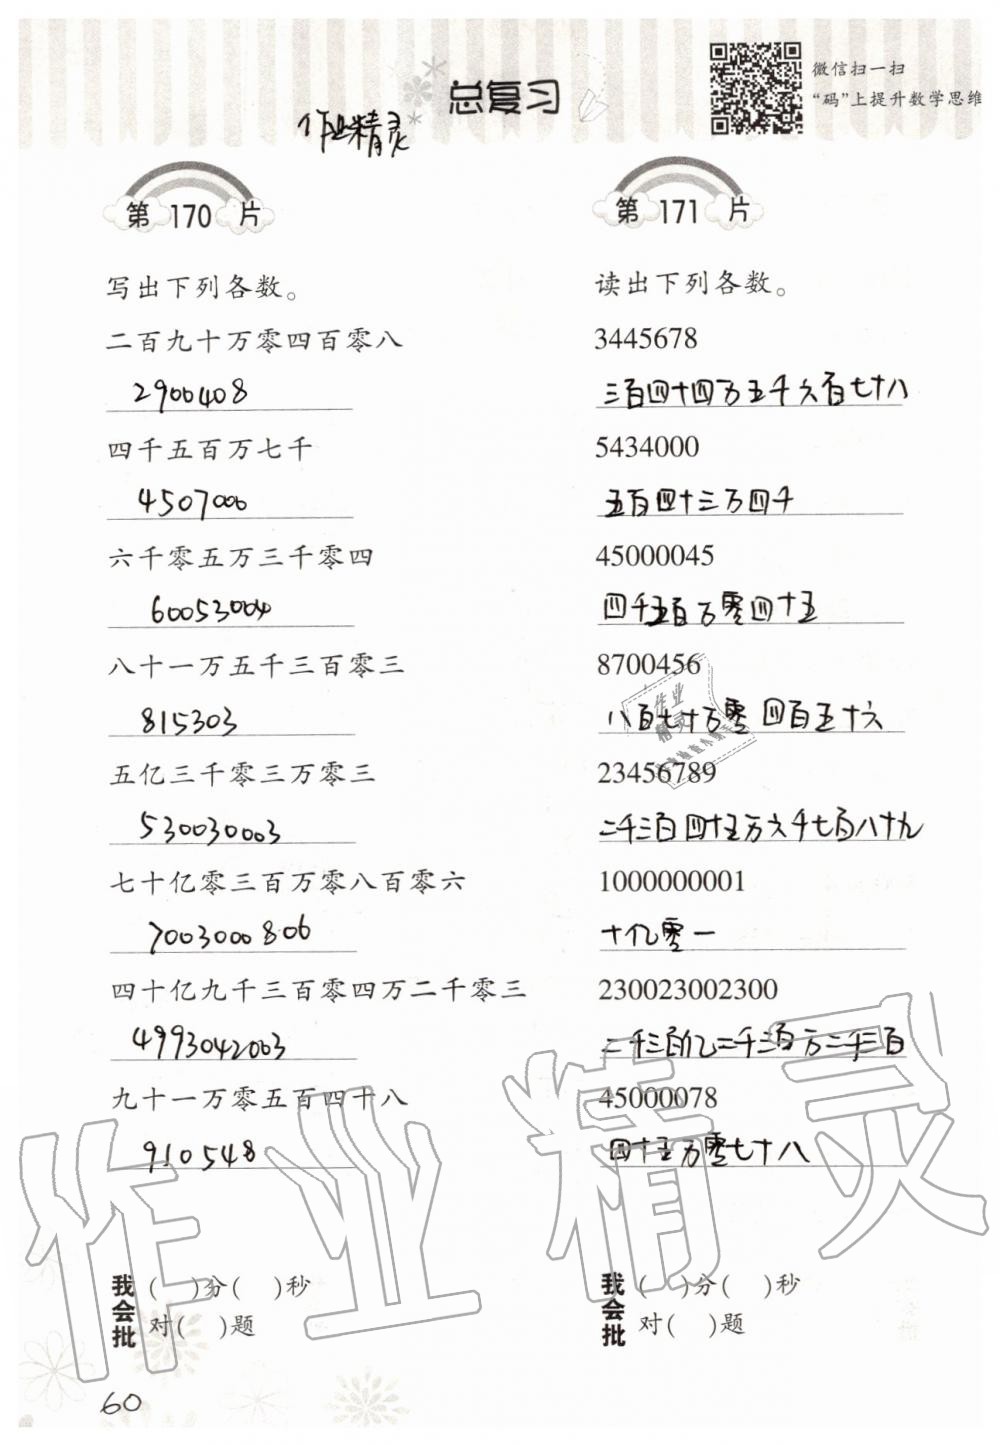 总复习
微信扫一扫
“码”上提升数学思维
作业精灵
第 170 片
写出下列各数。
二百九十万零四百零八
2900408
四千五百万七千
4507000
六千零五万三千零四
60053004
八十一万五千三百零三
815303
五亿三千零三万零三
530030003
七十亿零三百万零八百零六
7003000806
四十亿九千三百零四万二千零三
4993042003
九十一万零五百四十八
910548
我会批
( )分( )秒
对( )题
第 171 片
读出下列各数。
3445678
三百四十四万五千六百七十八
5434000
五百四十三万四千
45000045
四千五百万零四十五
8700456
八百七十万零四百五十六
23456789
二千三百四十五万六千七百八十九
1000000001
十亿零一
230023002300
二千三百亿二千三百万二千三百
45000078
四十五万零七十八
我会批
( )分( )秒
对( )题
60
作业精灵
作业
精灵